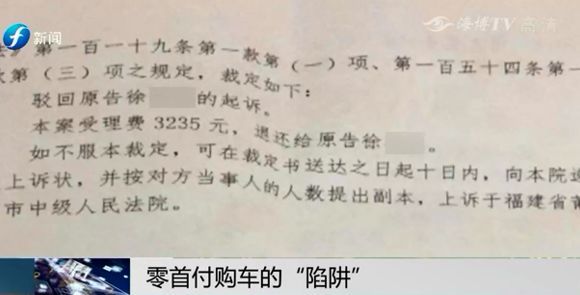 新闻
海博TV 高清
第一百一十九条第一款第(一)项、第一百五十四条第一
款第(三)项之规定,裁定如下:
驳回原告徐 的起诉。
本案受理费3235元,退还给原告徐 。
如不服本裁定,可在裁定书送达之日起十日内,向本院递
上诉状,并按对方当事人的人数提出副本,上诉于福建省莆
市中级人民法院。
零首付购车的“陷阱”